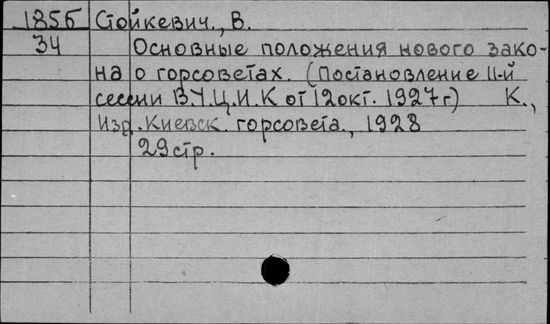 1856 Стойкевич., В.
34 Основные положения нового зако-
на о горсоветах. (Постановление II-й
сессии В.У.Ц.И.К от 12 окт. 1927 г) К.,
Изд. Киевск. горсовета., 1928
29 стр.